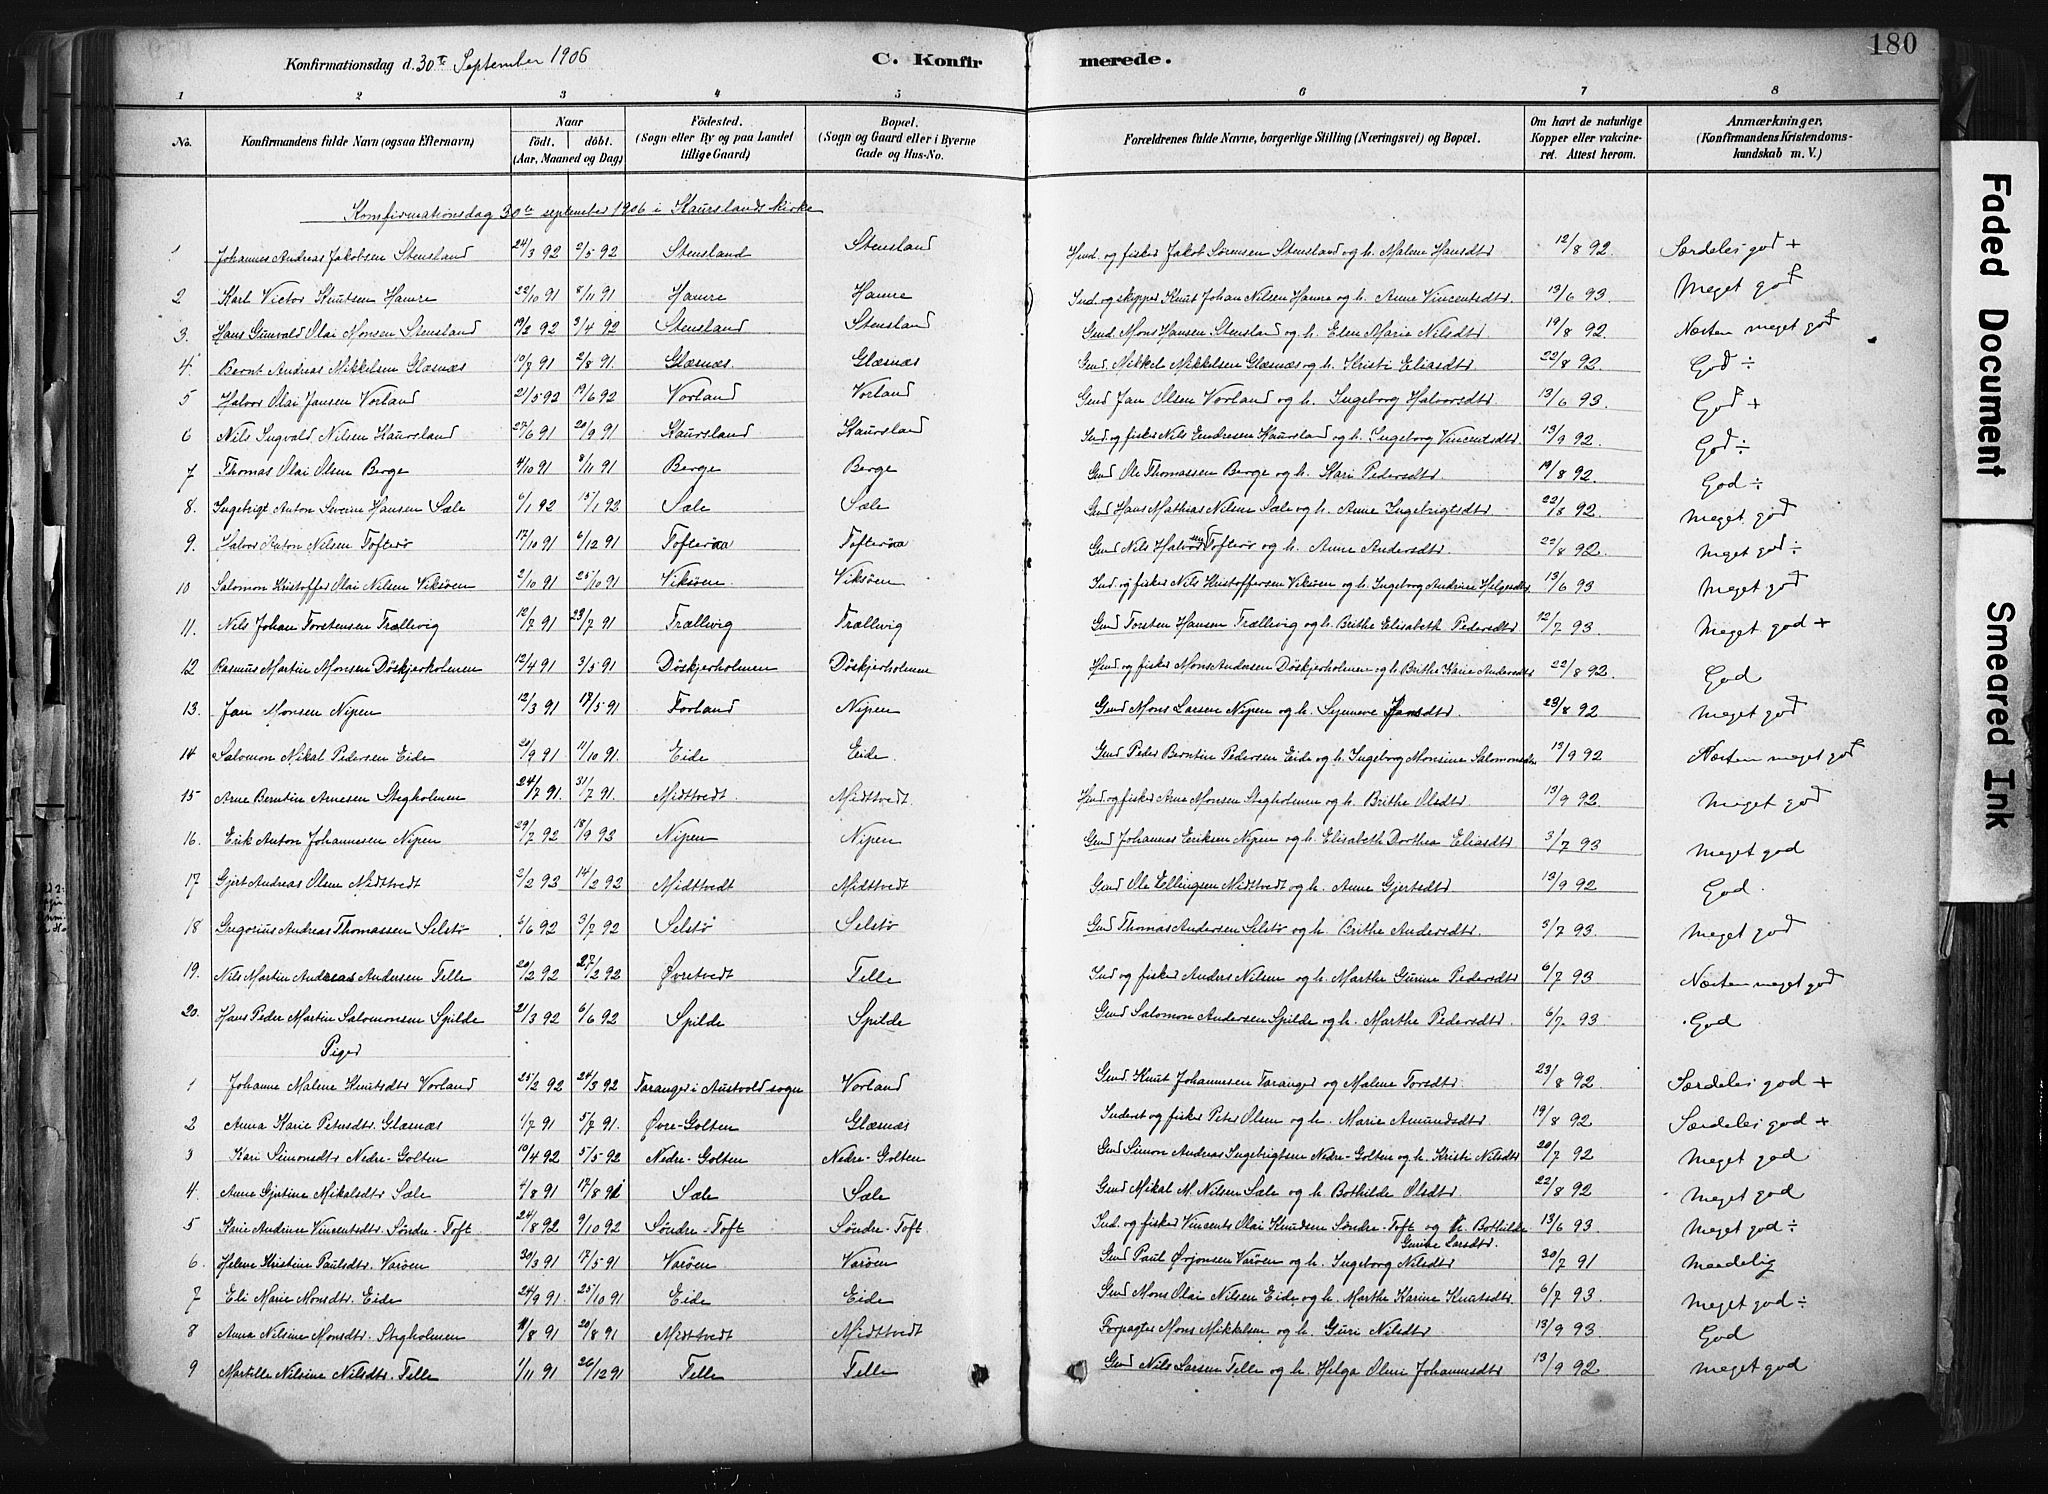 Konfirmationsdag d. 30te September 1906
C. Konfir merede.
180
1 2 3 4 5 6 7 8
No. Konfirmandens fulde Navn (ogsaa Efternavn) Naar født. døbt. (Aar, Maaned og Dag) Fødested. (Sogn eller By og paa Landet tillige Gaard) Bopæl. (Sogn og Gaard eller i Byerne Gade og Hus-No. Forældrenes fulde Navne, borgerlige Stilling (Næringsvei) og Bopæl. Om havt de naturlige Kopper eller vakcineret. Attest herom. Anmærkninger, (Konfirmandens Kristendomskundskab m. V.)
Konfirmationsdag 30te september 1906 i Kaurslands kirke
1 Johannes Andreas Jakobsen Stensland 24/3 92 2/5 92 Stensland Stensland Husd. og fisker Jakob Sörensen Stensland og h. Malene Hansdtr 12/8 92. Særdeles god +
2 Karl Victor Knutsen Hamre 22/10 91 8/11 91 Hamre Hamre Ind og skipper Knut Johan Nilsen Hamre og h. Anne Vincentsdtr. 13/6 93. Meget god
3. Hans Gunvald Olai Monsen Stensland 19/2 92 3/4 92 Stensland Stensland Gmd. Mons Hansen Stensland og h. Elen Marie Nilsdtr. 19/8 92. Næsten meget god
4. Bernt Andreas Mikkelsen Glæsnæs 10/7 91 2/8 91. Glæsnæs. Glæsnæs Gmd. Mikkel Mikkelsen Glæsnæs og h. Kristi Eliasdtr 22/8 92. God ÷
5 Halvor Olai Jansen Vorland 21/5 92 19/6 92 Vorland Vorland Gmd Jan Olsen Vorland og h. Ingeborg Halvorsdtr. 13/6 93. God +
6 Nils Ingvald Nilsen Kaursland 27/6 91 20/9 91 Kaursland Kaursland Ind og fisker Nils Endresen Kaursland og h. Ingeborg Vincentsdtr 13/9 92. God ÷
7 Thomas Olai Olsen Berge 4/10 91 8/11 91 Berge Berge Gmd Ole Thomassen Berge og h. Kari Pedersdtr. 19/8 92. God ÷
8. Ingebrigt Anton Severin Hansen Sæle 6/1 92 15/1 92 Sæle Sæle Gmd Hans Mathias Nilsen Sæle og h. Anne Ingebrigtsdtr 22/8 92. Meget god
9. Halvor Anton Nilsen Tofterø 17/10 91 6/12 91 Tofterøa Tofterøa Gmd Nils Halvorsen Tofterø og h. Anne Andersdtr. 22/8 92. Meget god ÷
10 Salomon Kristoffer Olai Nilsen Viksøen 2/10 91 25/10 91 Viksøen. Viksøen Ind. og fisker Nils Kristoffersen Viksøen og h. Ingeborg Andrine Helgesdtr. 13/6 93 Meget god
11. Nils Johan Torstensen Trællevig 12/7 91 23/7 91 Trællevig Trællevig Gmd Torsten Hansen Trællevig og h. Brithe Elisabeth Pedersdtr 12/7 93. Meget god +
12 Rasmus Martin Monsen Döskjerholmen 12/4 91 3/5 91 Döskjerholmen Döskjerholmen Husd og fisker Mons Andersen Döskjerholmen og h. Brithe Karie Andersdtr 22/8 92. God
13. Jan Monsen Nipen 12/3 91 17/5 91 Forland Nipen Gmd Mons Larsen Nipen og h. Synneve Jansdtr. 23/8 92 Meget god
14 Salomon Mikal Pedersen Eide 20/9 91 11/10 91. Eide Eide. Gmd Peder Berntin Pedersen Eide og h. Ingeborg Monsine Salomonsdtr 13/9 92 Næsten meget god
15 Arne Berntin Arnesen Stegholmen 24/7 91. 31/7 91. Midttvedt. Midttvedt. Husd og fisker Arne Monsen Stegholmen og h. Brithe Olsdtr. 13/9 92. Meget god
16. Erik Anton Johannesen Nipen 29/7 92 18/9 92 Nipen Nipen Gmd Johannes Eriksen Nipen og h. Elisabeth Dorthea Eliasdtr 3/7 93. Meget god
17 Gjert Andreas Olsen Midttvedt 2/2 92 14/2 92 Midttvedt Midttvedt Gmd Ole Ellingsen Midttvedt og h. Anne Gjertsdtr 13/9 92 God.
18 Gregorius Andreas Thomassen Selstø 5/6 92 3/7 92 Selstø Selstø Gmd Thomas Andersen Selstø og h. Brithe Andersdtr. 3/7 93. Meget god
19. Nils Martin Andreas Andersen Telle 20/2 92 27/2 92 Øvretvedt Telle Ind og fisker Anders Nilsen og h. Marthe Gurine Pedersdtr 6/7 93 Næsten meget god
20. Hans Peder Martin Salomonsen Spilde 21/3 92 6/6 92 Spilde Spilde Gmd Salomon Andersen Spilde og h. Marthe Pedersdtr. 6/7 93. God
Piger
1 Johanne Malene Knutsdtr Vorland 25/2 92 24/3 92 Taranger i Austvold sogn Vorland Gmd Knut Johannesen Taranger og Malene Torsdtr 23/8 92 Særdeles god +
2 Anna Karie Petersdtr. Glæsnæs 1/7 91 5/7 91. Øvre-Golten Glæsnæs Inderst og fisker Peter Olsen og h. Marie Amundsdtr. 19/8 92 Særdeles god +
3 Kari Simonsdtr Nedre-Golten 10/4 92 5/5 92 Nedre-Golten Nedre-Golten Gmd Simon Andreas Ingebrigtsen Nedre-Golten og h. Kristi Nilsdtr 20/7 92 Meget god
4. Anne Gjertine Mikalsdtr Sæle 4/8 91 17/8 91 Sæle Sæle Gmd Mikal M. Nilsen Sæle og h. Bothilde Olsdtr. 22/8 92 Meget god
5 Karie Andrine Vincentsdtr. Söndre-Toft 24/8 92 9/10 92 Söndre-Toft Söndre-Toft. Ind. og fisker Vincents Olai Knudsen Söndre-Toft og h. Bothilde Gurine Larsdtr. 13/6 93. Meget god ÷
6. Helene Kristine Paulsdtr. Varöen 30/3 91 17/5 91 Varöen Varöen Gmd Paul Ørjonsen Varöen og h. Ingeborg Nilsdtr 30/7 91 Maadelig
7 Eli Marie Monsdtr. Eide 24/9 91. 25/10 91 Eide Eide Gmd Mons Olai Nilsen Eide og h. Marthe Karine Knutsdtr. 6/7 93. Meget god ÷
8 Anna Nilsine Monsdtr. Stegholmen 11/8 91 20/8 91 Midttvedt Midttvedt Forpagter Mons Mikkelsen og h. Guri Nilsdtr 13/9 93 God
9 Martille Nilsine Nilsdtr. Telle 1/11 91 26/12 91 Telle Telle Gmd Nils Larsen Telle og h. Helga Oline Johannesdtr 13/9 92 Meget god
Faded Document
Smeared Ink